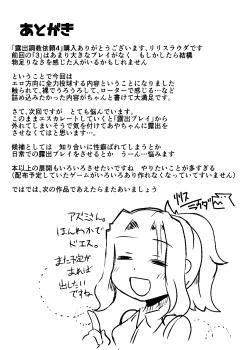 あとがき
「露出調教依頼4」購入ありがとうございます、リリスラウダです
前回の「3」はあまり大きなプレイがなく　もしかしたら結構
物足りなさを感じた人がいるかもしれません
ということで今回は
エロ方向に全力投球する内容ということになりました
触られて、裸でうろうろして、ローターで感じる…など
詰め込みたかった内容がちゃんと書けて大満足です。
さて、次回ですが　とても悩んでいます。
このままエスカレートしていくと「露出プレイ」から
外れてしまいそうで気を付けてあやちゃんに露出を
させなくてはと思います…
候補としては　知り合いに性癖ばれてしまうとか
日常での露出プレイをさせるとか　うーん…悩みます
本以上の展開もいろいろさせたいですね　やりたいことが多すぎる
(配布予定していたゲームがいろいろあり作れなくなっていてすいません)
ではでは、次の作品であえたらまたあいましょう
アズミさん。
ほんわかで
ドエス。
また予定が
あれば
出したい
ですね